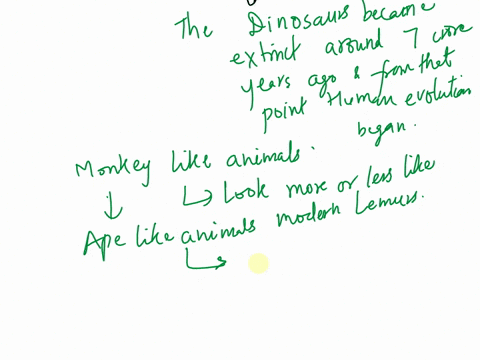 The Dinosaurs became
extinct around 7 crore
years ago & from that
point Human evolution
began.
Monkey like animals.
↳ Look more or less like
modern Lemurs.
↓
Ape like animals
↳